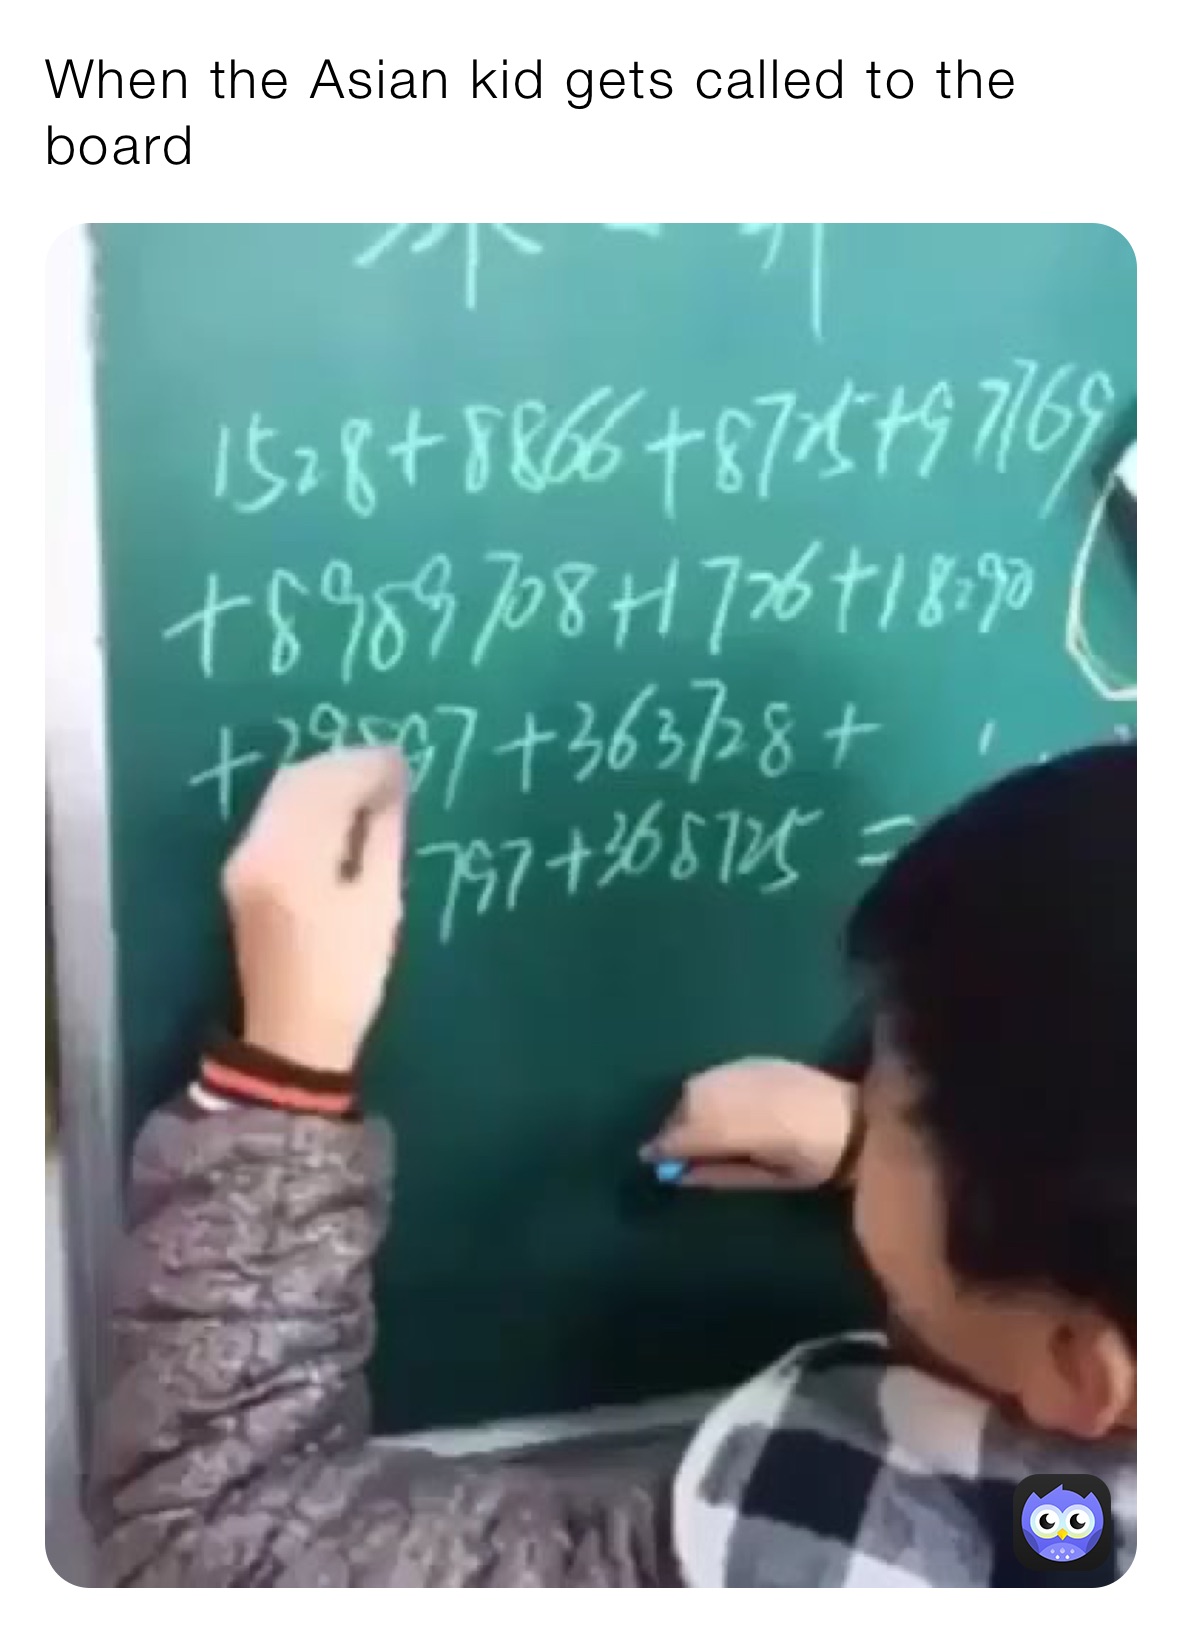 When the Asian kid gets called to the
board
1528+8866+8725+97769
+8989708+1726+18290
+363728+
797+368725 =